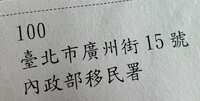 100
臺北市廣州街15號
內政部移民署